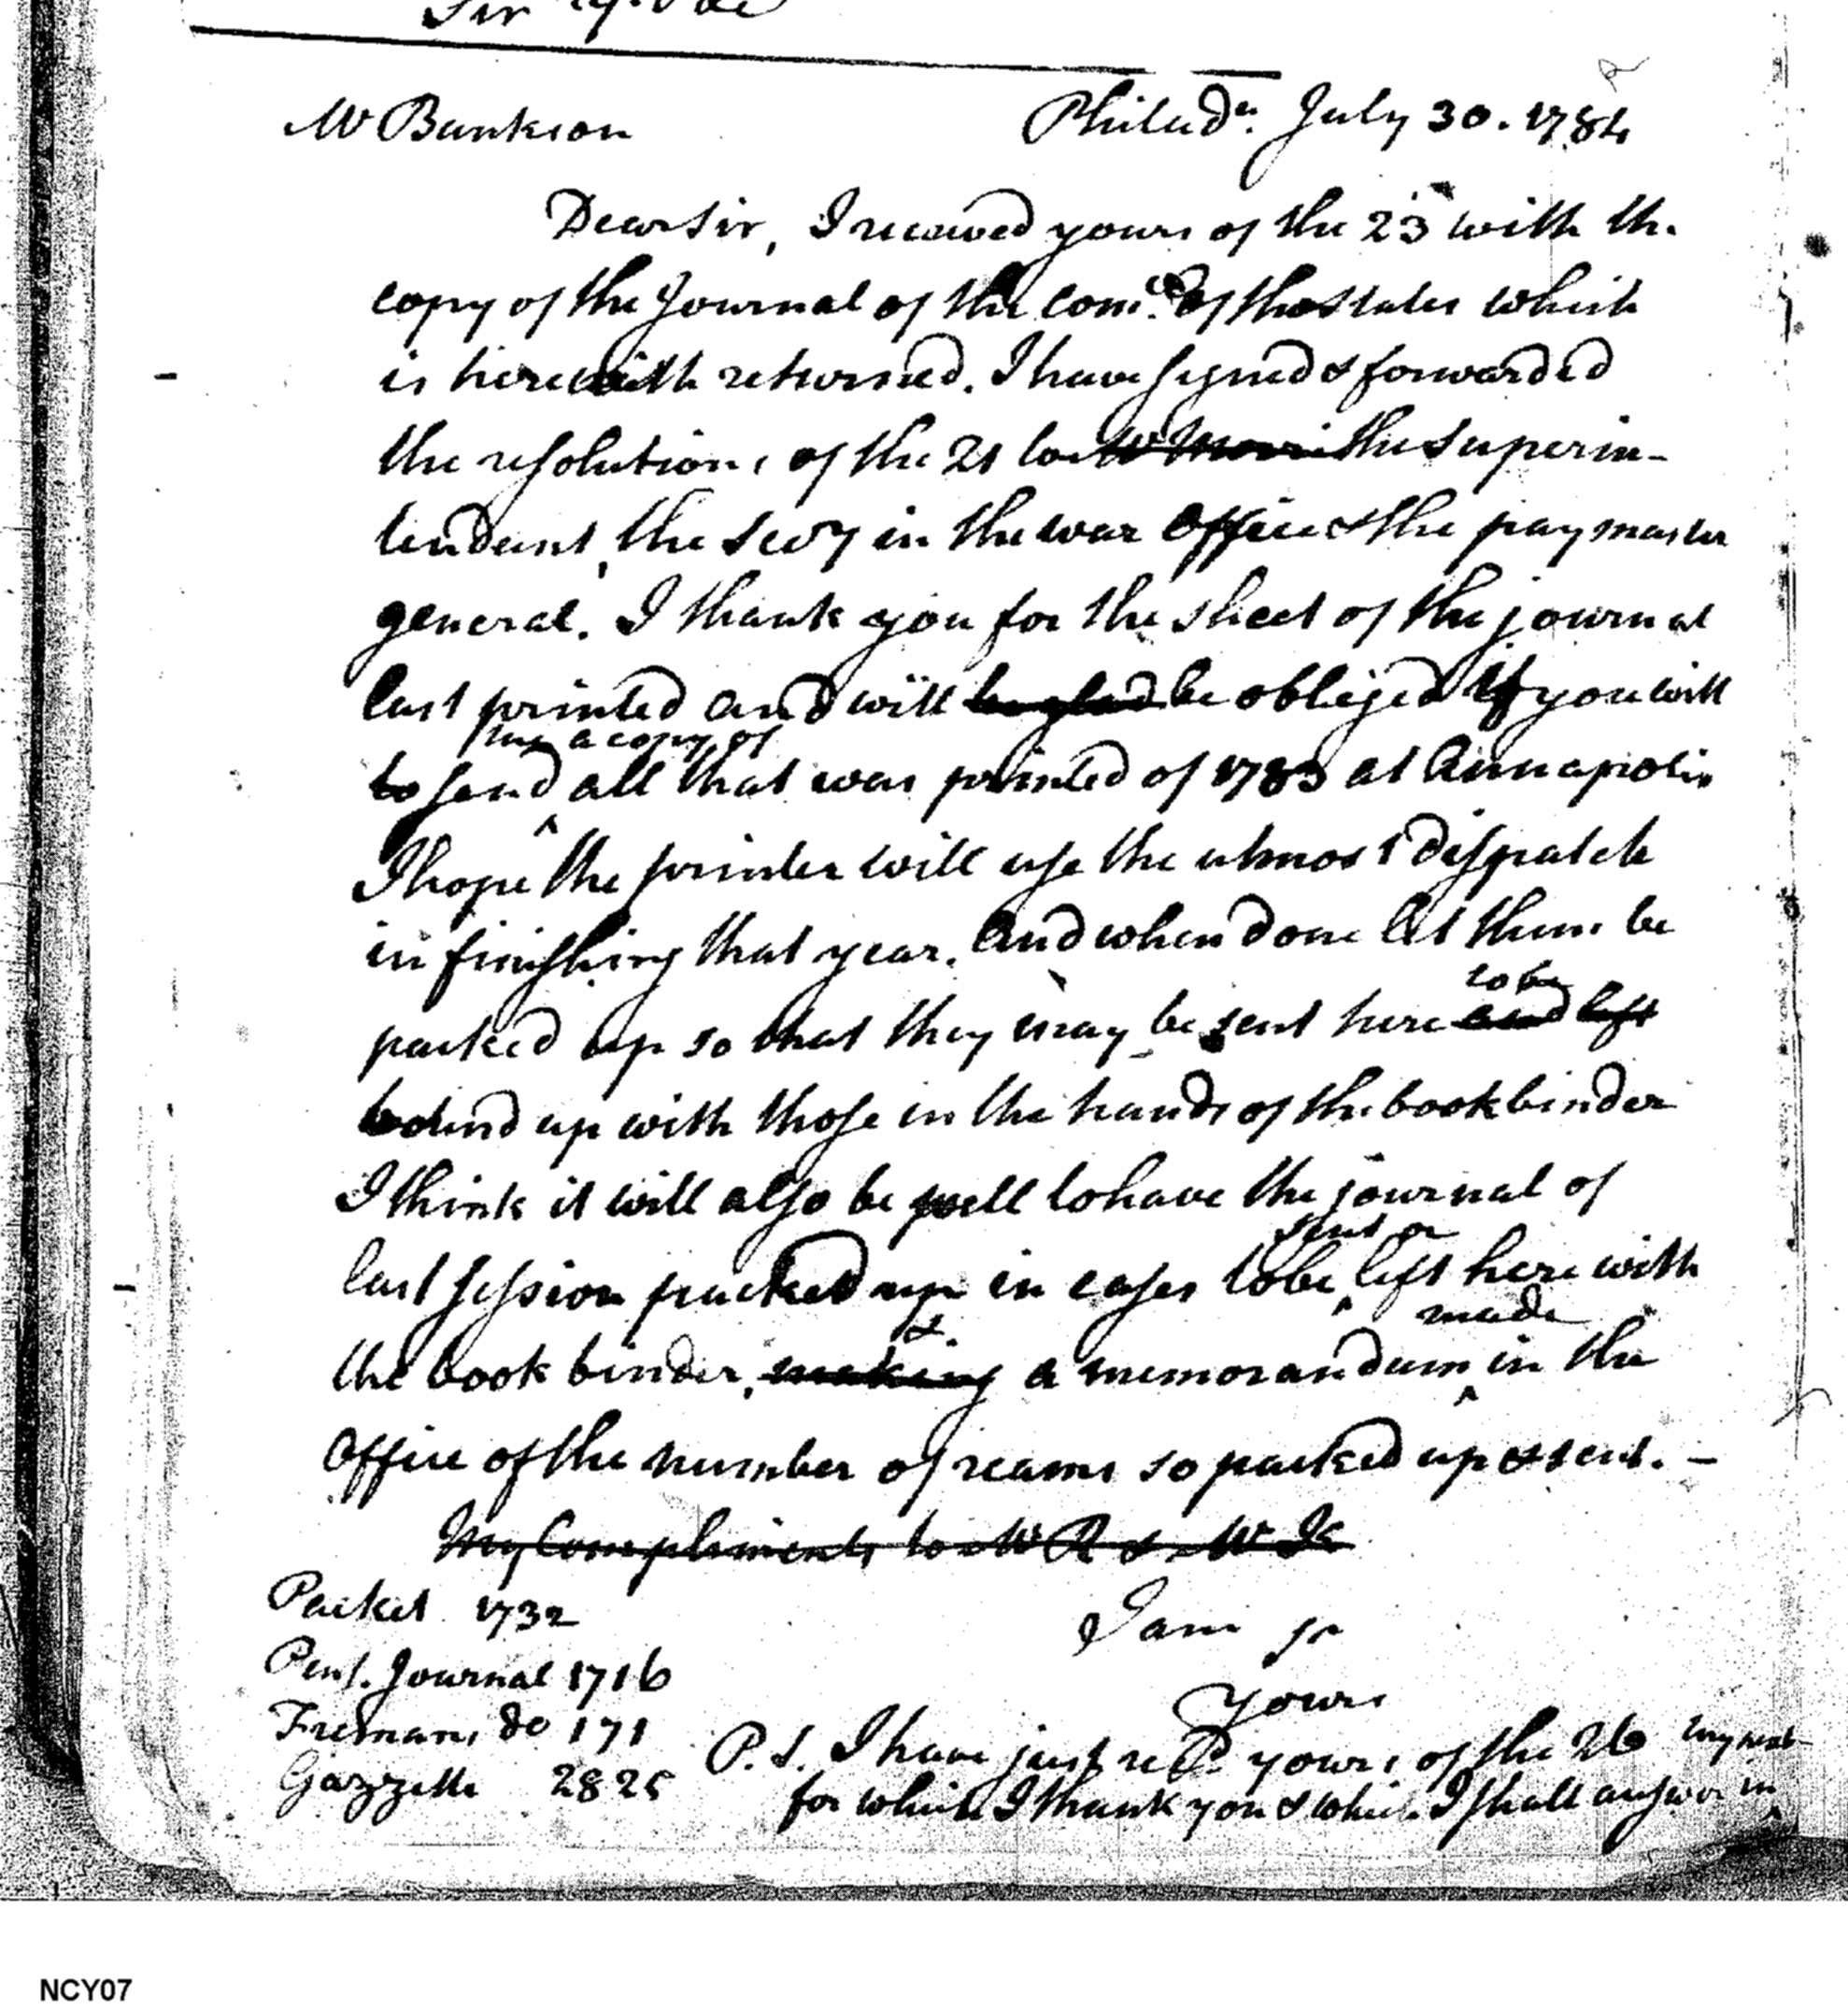 Mr Bankson Philada. July 30. 1784
Dear Sir, I received yours of the 23 with the
copy of the Journal of the Comee. of the states which
is herewith returned. I have signed & forwarded
the resolutions of the 21 to Mr Morris the Superin-
tendent, the secy in the war Office & the pay master
general. I thank you for the sheet of the journal
last printed and will be glad be obliged if you will
me a copy of
to send all that was printed of 1783 at Annapolis
I hope the printer will use the utmost dispatch
in finishing that year. And when done let them be
to be
packed up so that they may be sent here and left
bound up with those in the hands of the bookbinder
I think it will also be well to have the journal of
sent or
last session packed up in cases to be left here with
& made
the book binder, making a memorandum in the
Office of the number of reams so packed up & sent. -
My Compliments to Mr R & Mr
Packet 1732
I am
Pens. Journal 1716
Yours
Fremans do 171
P.S. I have just recd. yours of the 26 my next
Gazzette 2825
for which I thank you & which I shall answer in
NCY07